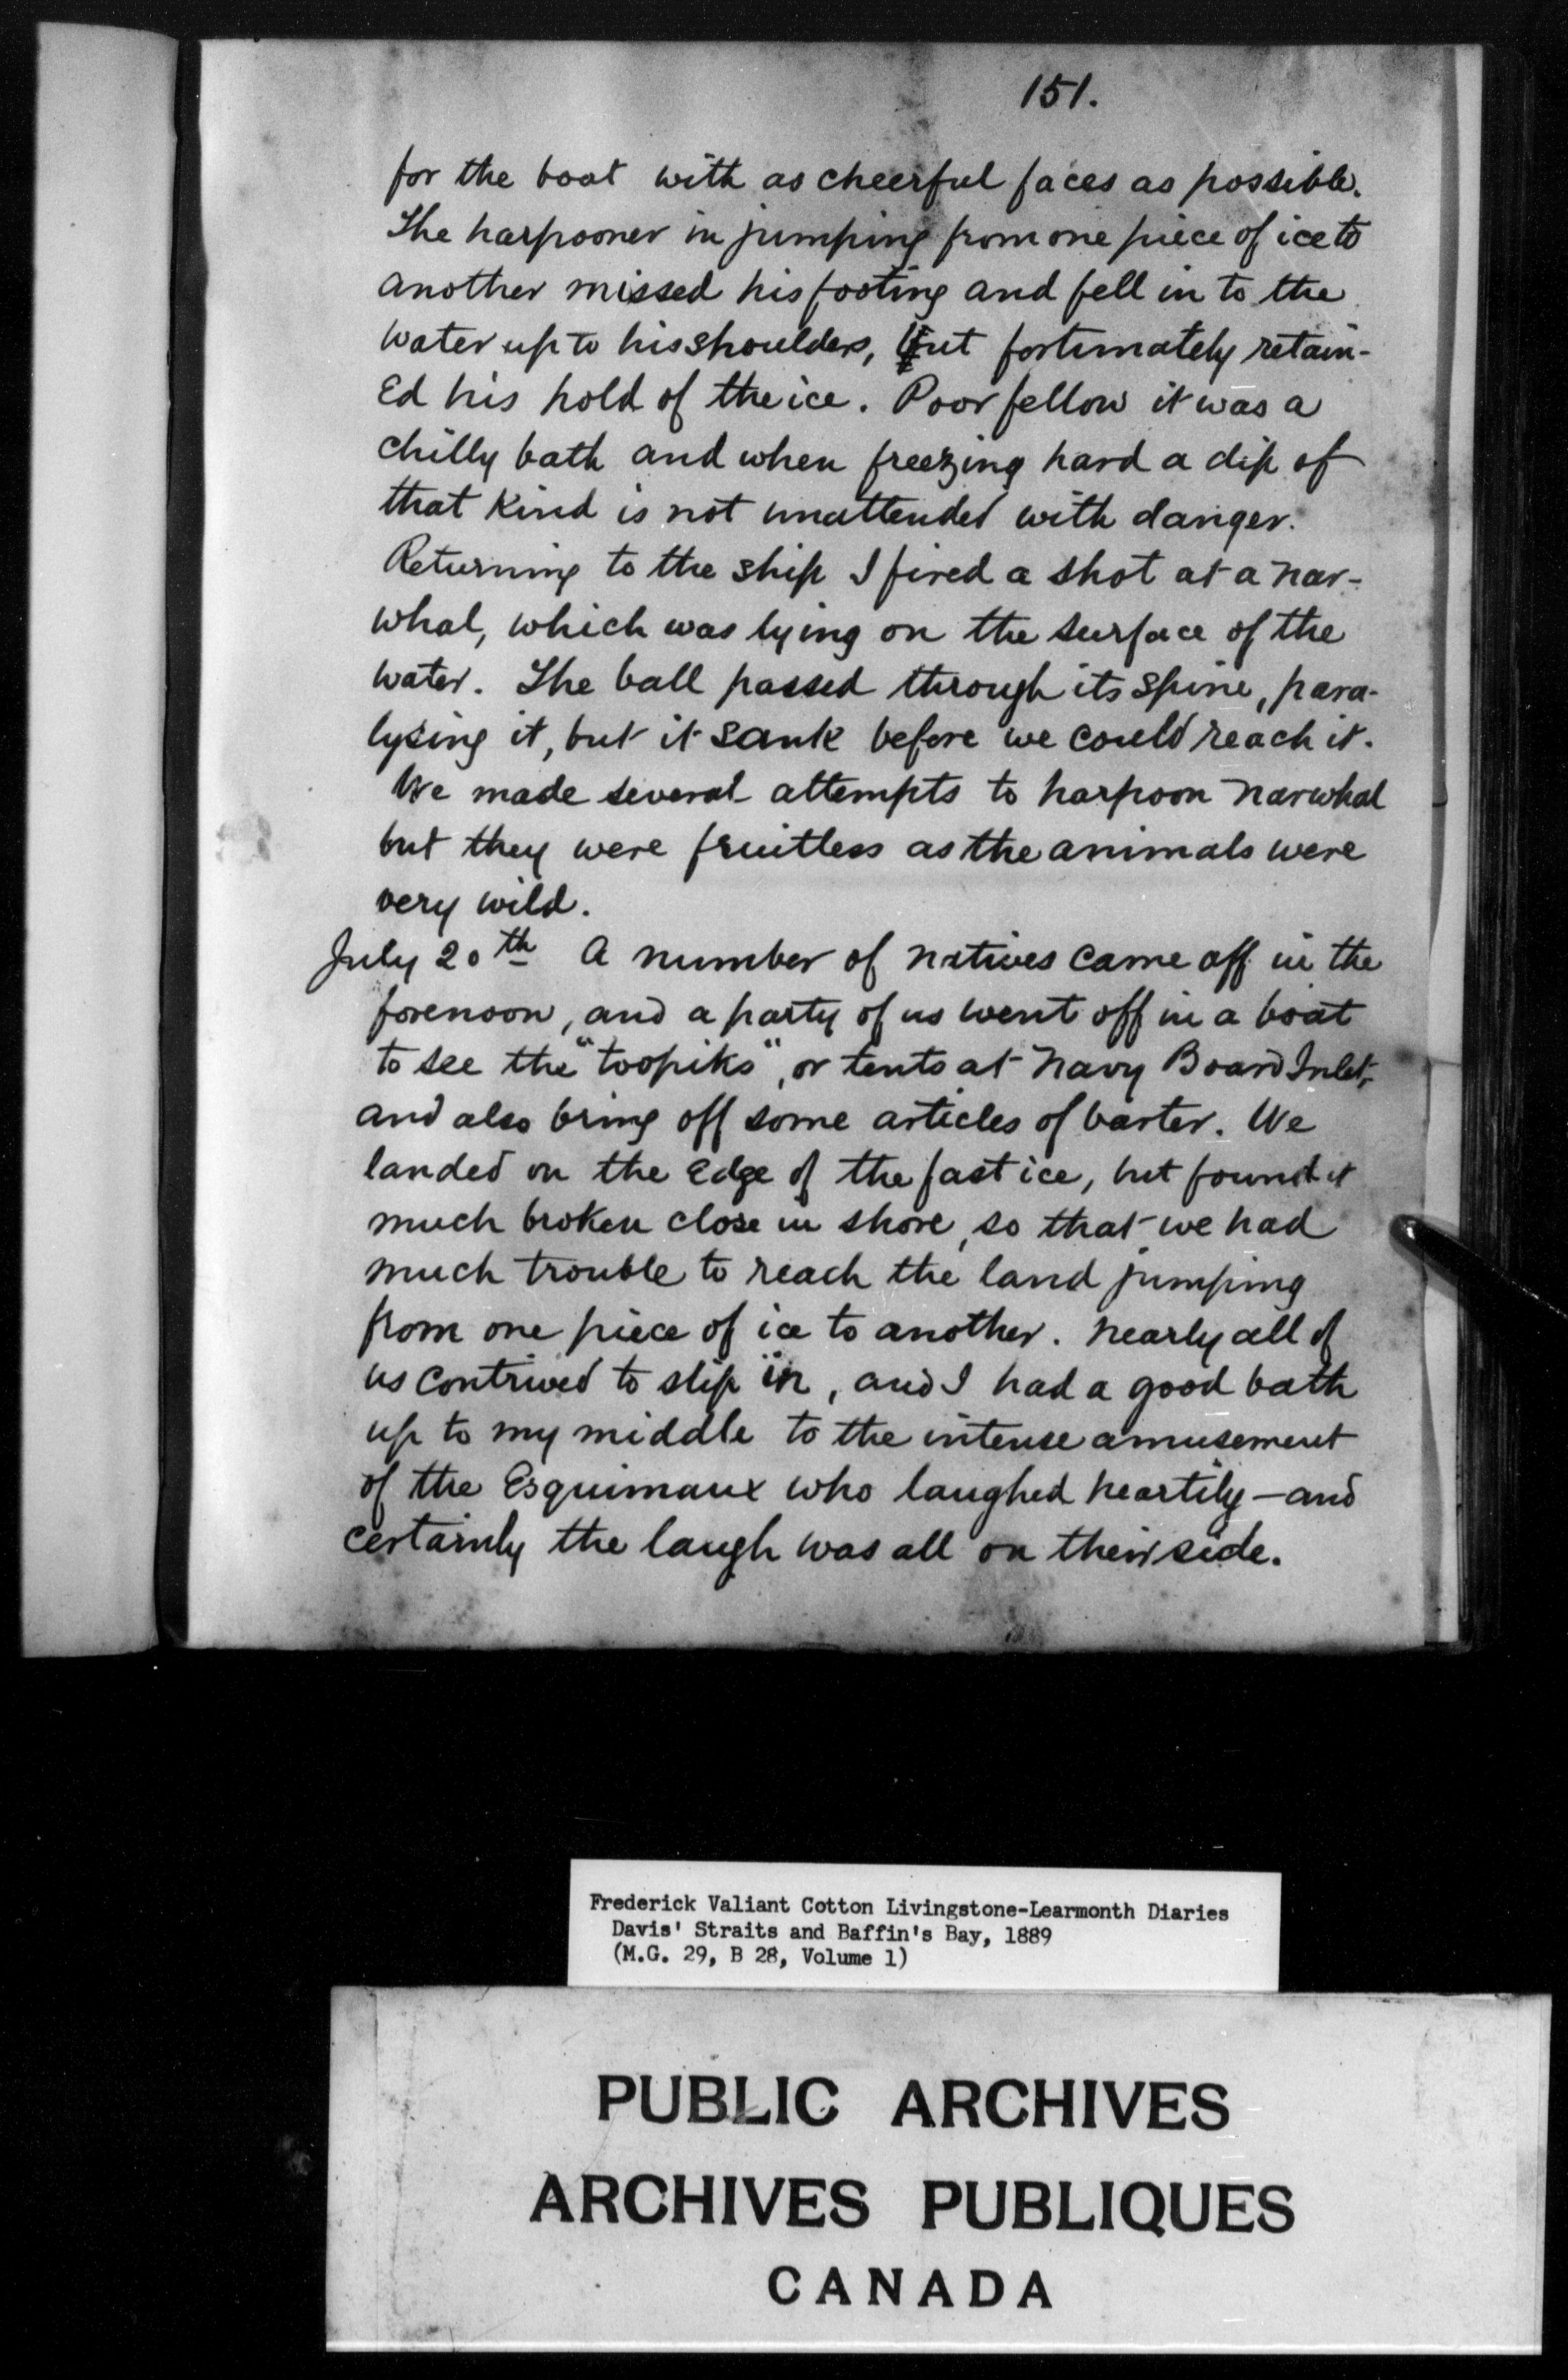 151.
for the boat with as cheerful faces as possible.
The harpooner in jumping from one piece of ice to
another missed his footing and fell in to the
water up to his shoulders, but fortunately retain-
ed his hold of the ice. Poor fellow it was a
chilly bath and when freezing hard a dip of
that kind is not unattended with danger.
Returning to the ship I fired a shot at a nar-
whal, which was lying on the surface of the
water. The ball passed through its spine, para-
lysing it, but it sank before we could reach it.
We made several attempts to harpoon narwhal
but they were fruitless as the animals were
very wild.
July 20th A number of natives came off in the
forenoon, and a party of us went off in a boat
to see the "toopiks", or tents at Navy Board Inlet,
and also bring off some articles of barter. We
landed on the edge of the fast ice, but found it
much broken close in shore, so that we had
much trouble to reach the land jumping
from one piece of ice to another. Nearly all of
us contrived to slip in, and I had a good bath
up to my middle to the intense amusement
of the Esquimaux who laughed heartily - and
certainly the laugh was all on their side.
Frederick Valiant Cotton Livingstone-Learmonth Diaries
Davis' Straits and Baffin's Bay, 1889
(M.G. 29, B 28, Volume 1)
PUBLIC ARCHIVES
ARCHIVES PUBLIQUES
CANADA